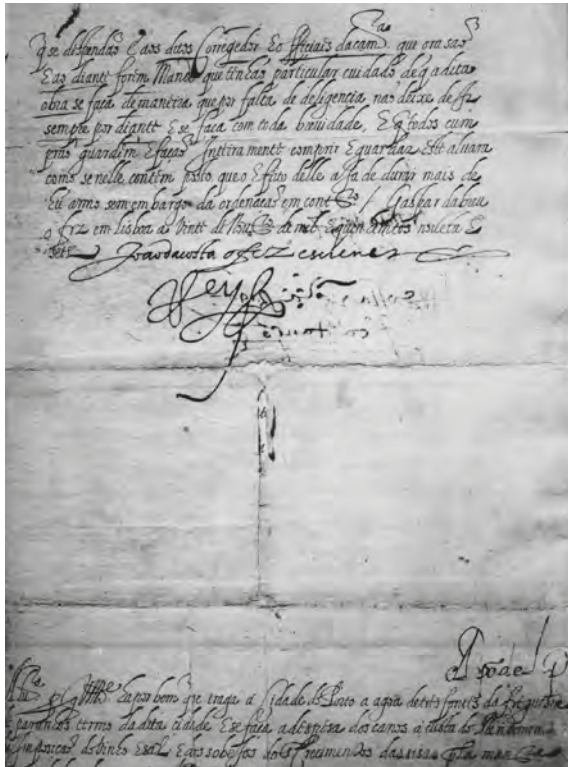 q̃ se despendão E aos ditos Corregedor E officiais da cam.ra que ora são
E ao diante forem Mando que tenhão particular cuidado de q̃ a dita
obra se faça de maneira que por falta de deligencia não deixe de hir
sempre por diante E se faça com toda breuidade, E q̃ todos cum
prão guardem E fação Inteiramente comprir E guardar Este aluara
como se nelle contem posto que o Efeito delle aja de durar mais de
hũ anno sem embargo da ordenação em contr.o / Gaspar dabreu
o fez em lisboa a vinte de de mil E quinhentos nouenta E
sete João da costa o fez escreuer
Rey
por bem que traga á Cidade do Porto a agoa de tres fontes da freguesia
de paranhos termo da dita cidade E se faça a despesa dos canos á custa do
do vinho E sal E dos sobejos dos